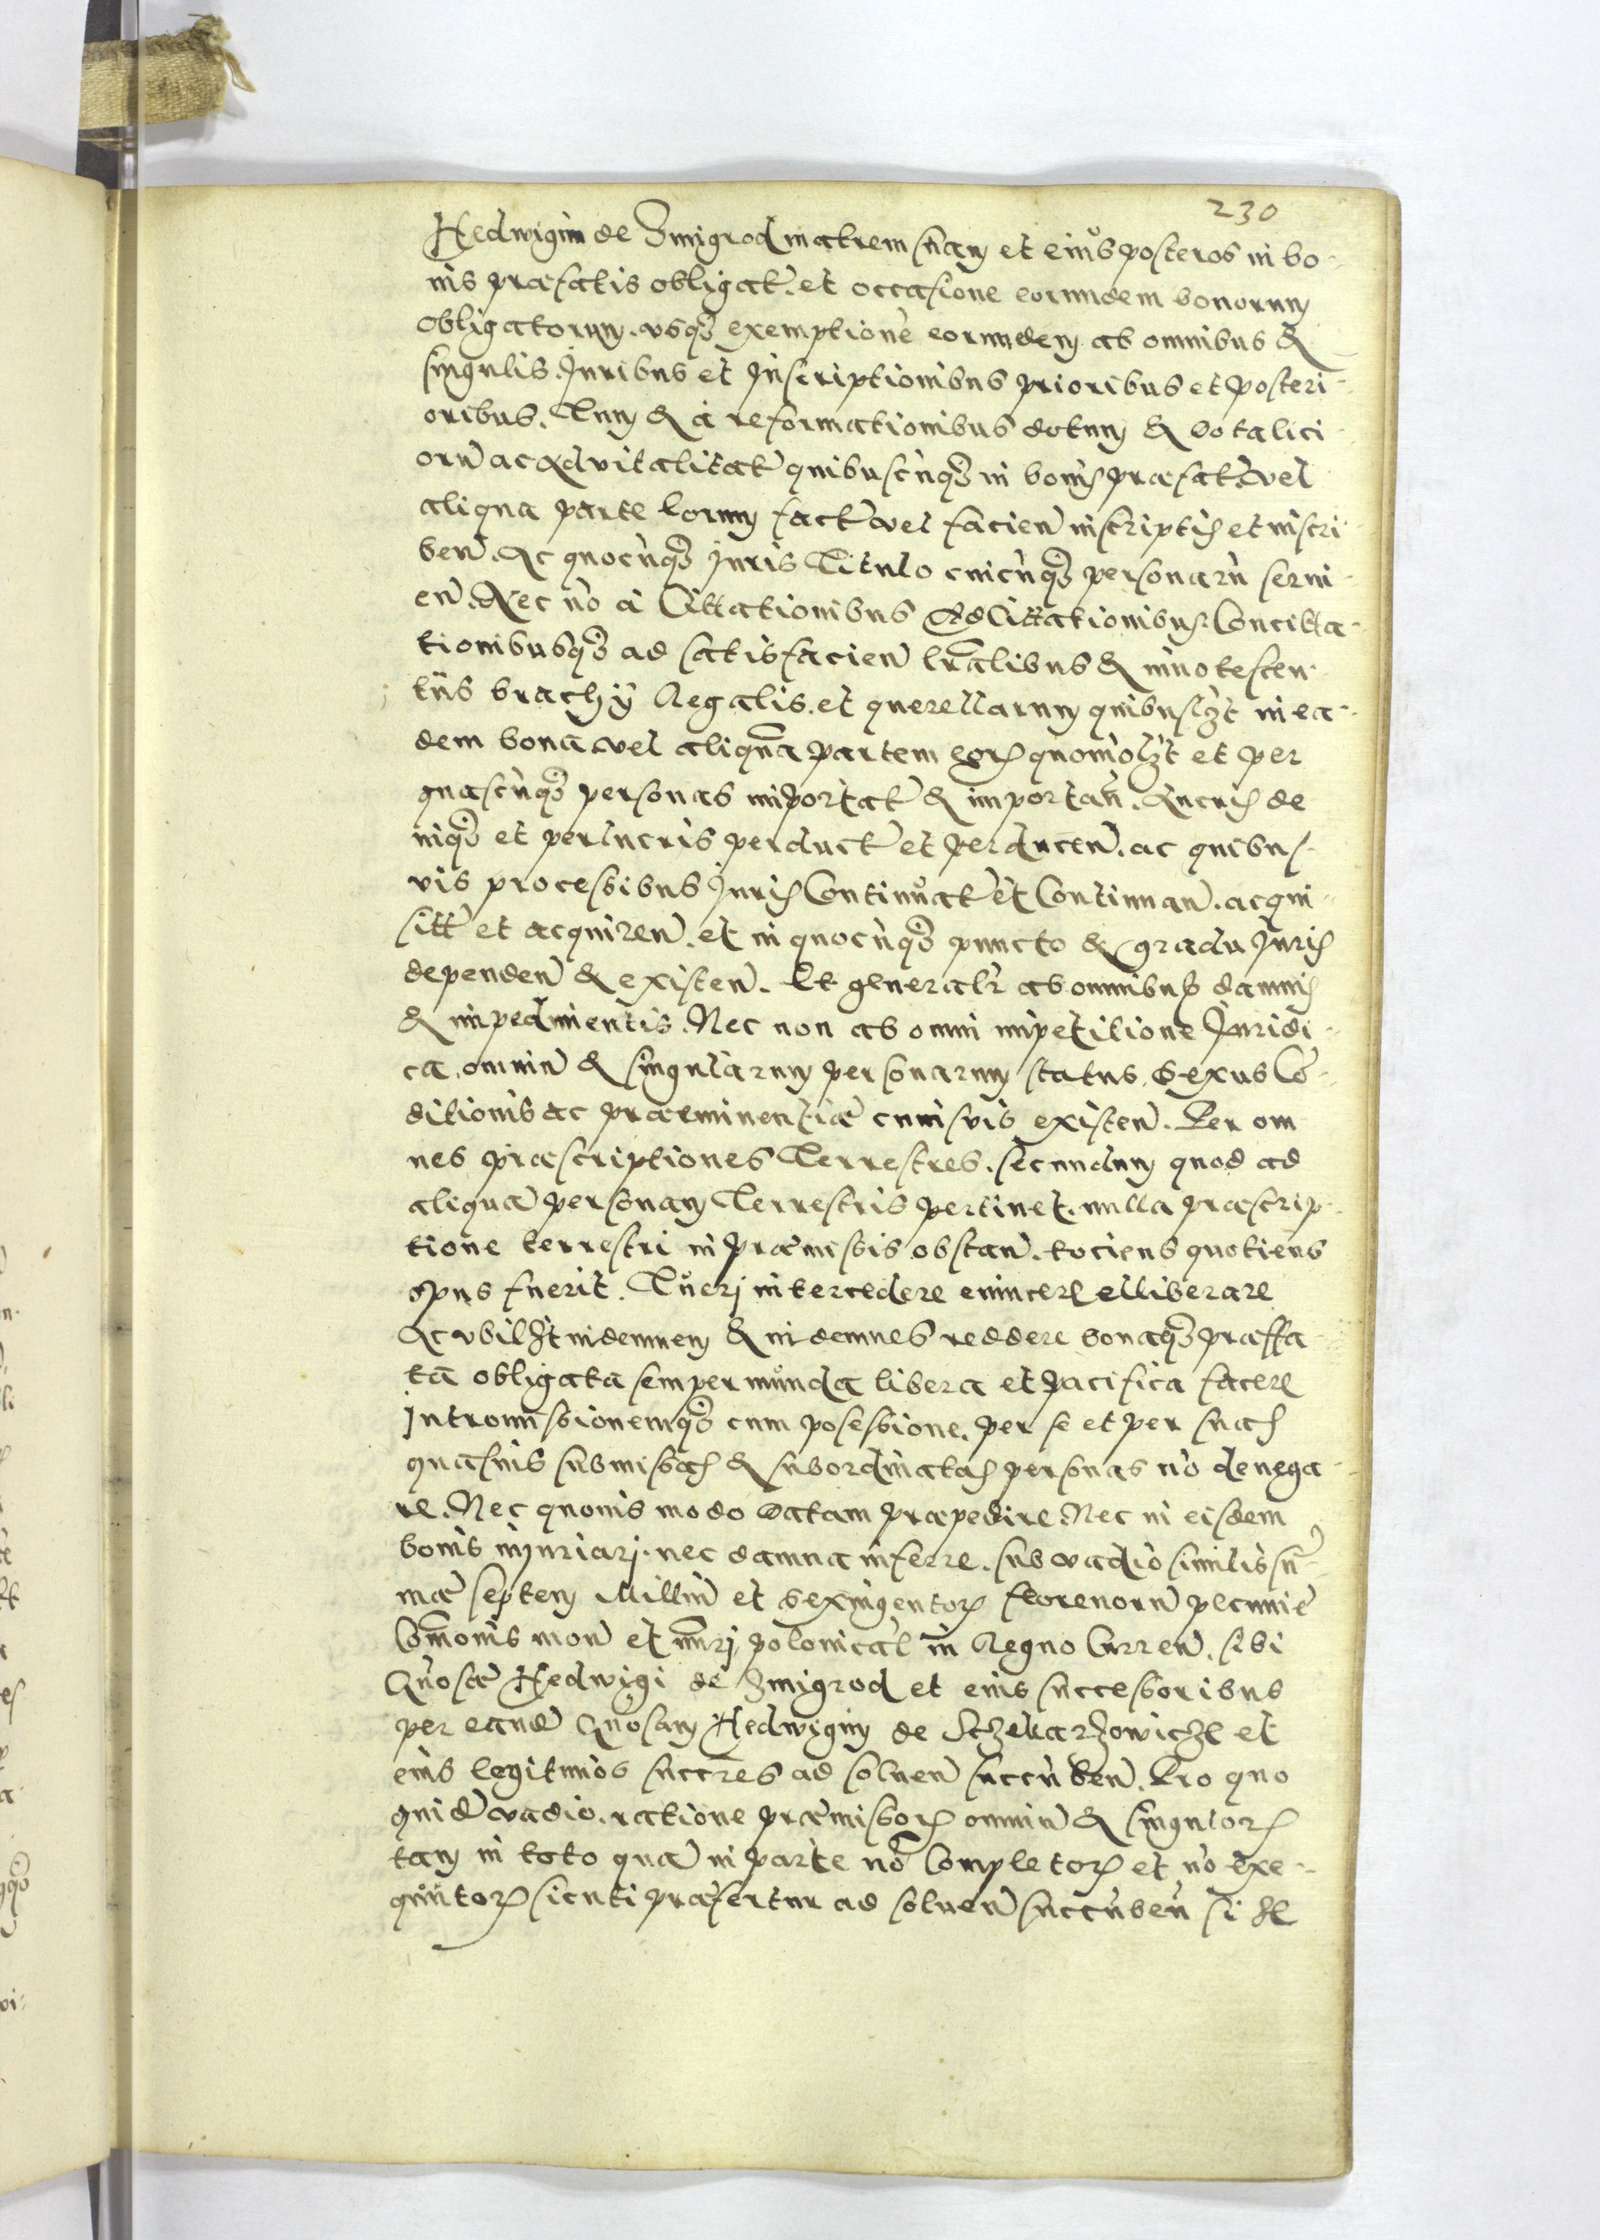 230
Hedwigim de Zmigrod matrem suam et eius posteros in bo-
nis præfatis obligat. et occasione eorundem bonorum
obligatorum. usq3 exemptione eorundem ab omnibus &
singulis Iuribus et Inscriptionibus prioribus et posteri-
oribus. Tum & a reformationibus dotum & dotalici-
oru ac advitalitat quibuscunq3 in bonis præfat. vel
aliqua parte eorum fact vel facien inscriptis et inscri-
ben. Ac quocunq3 Iuris Titulo cuicunq3 personaru servi-
en. Nec no a Cittationibus Adcittationibus Concitta-
tionibusq3 ad satisfacien lralibus & innotescen-
tiis brachÿ Regalis. et querellarum quibuslz't in ea-
dem bona vel aliqua partem eor quomolz't et per
quascunq3 personas importat & importan. Lucris de
niq3 et perlucris perduct et perducen. ac quibus-
vis processibus Iuris Continuat et Continuan. acqui-
sitt et acquiren. et in quocunq3 puncto & gradu Iuris
dependen & existen. Et generalr ab omnibus damnis
& impedimentis. Nec non ab omni impetitione Iuridi-
ca. omniu & singularum personarum status, sexus Co-
ditionis ac præeminentiæ cuiusvis existen. Per om
nes præscriptiones Terrestres. secundum quod ad
aliqua personam Terrestris pertinet. nulla præscrip-
tione terrestri in præmissis obstan. tociens quotiens
opus fuerit. Tueri intercedere evincere elliberare
Ac ubilz't indemnem & indemnes reddere bonaq3 præffa-
ta obligata semper munda libera et pacifica facere
Intromissionemq3 cum posessione. per se et per suas
quasvis submissas & subordinatas personas no denega-
re. Nec quovis modo datam præpedire. Nec in eisdem
bonis iniuriari. nec damna inferre. sub vadio similis su-
mæ septem Millin et sexingentor florenoru pecuniæ
Comonis mon et nuri polonical in Regno Curren. sibi
Gnosæ Hedwigi de Zmigrod et eius successoribus
per eand Gnosam Hedwigim de Sczekarzowicze et
eius legitimos succres ad solven succuben. Pro quo
quide vadio. ratione præmissor omniu & singulor
tam in toto qua in parte no Completor et no exe-
quutor sicuti præfertur ad solven succuben si se